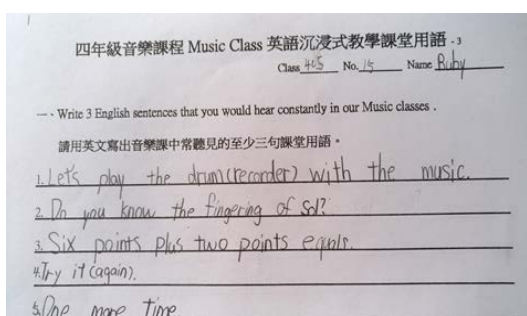 四年級音樂課程 Music Class 英語沉浸式教學課堂用語 - 3
Class 405 No. 15 Name Ruby
一、Write 3 English sentences that you would hear constantly in our Music classes .
請用英文寫出音樂課中常聽見的至少三句課堂用語。
1. Let's play the drum(recorder) with the music.
2. Do you know the fingering of Sol?
3. Six points plus two points equals.
4. Try it (again).
5. One more time